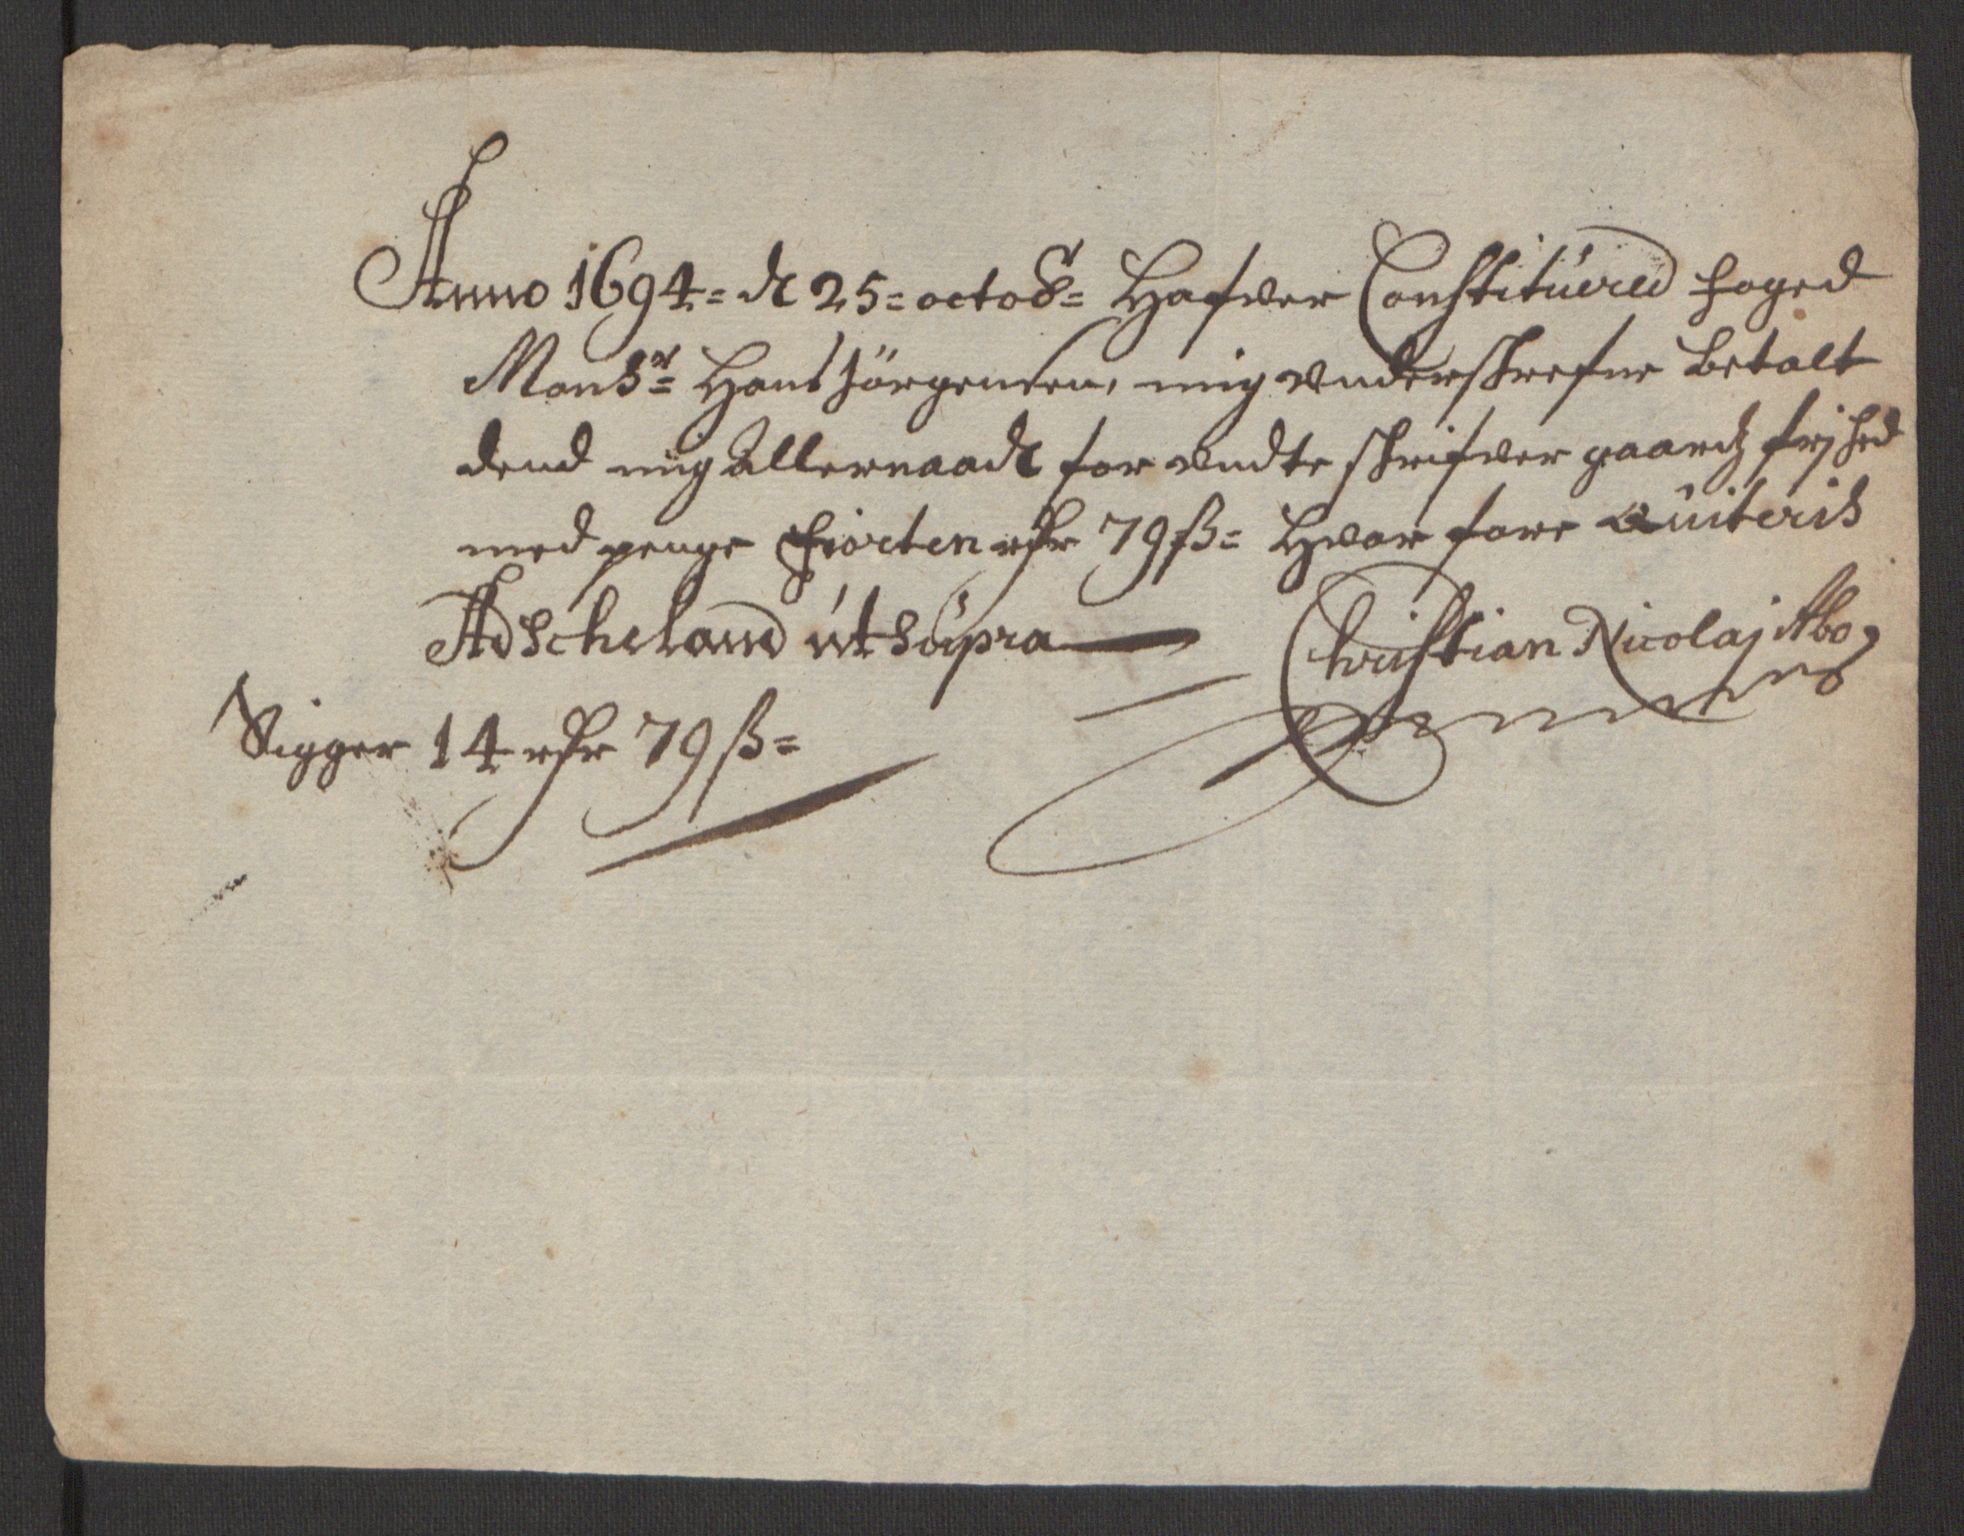 Anno 1694 = de 25 = octob = Hafver Constituered foged
Monsr = Hans Jörgensen, mig underschrefne betalt
dend mig Allernaadt for undte schrifver gaardz frjhed
med penge Fiorten rdr 79 ß = Hvor fore Quiteris
Adscheland út súpra
Christian Nicolaj Abo
Sigger 14 rdr 79 ß =